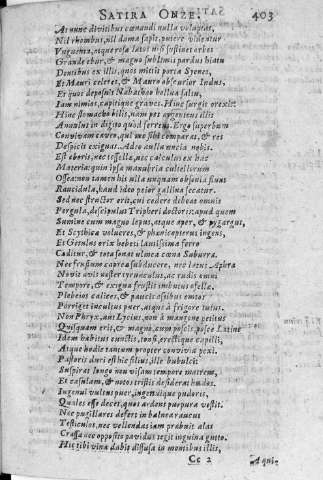 SATIRA ONZE. 403
At nunc divitibus cœnandi nulla voluptas,
Nil rhombus, nil dama sapit, putere videntur
Vnguenta, atque rosæ latos nisi sustinet orbes
Grande ebur, & magno sublimis pardus hiatu
Dentibus ex illis, quos mittit porta Syenes,
Et Mauri celeres, & Mauro obscurior Indus,
Et quos deposuit Nabathæo bellua saltu,
Iam nimios, capitique graves. Hinc surgit orexis:
Hinc stomacho bilis, nam pes argenteus illis
Annulus in digito quod ferreus. Ergo superbum
Convivam caveo, qui me sibi comparat, & res
Despicit exiguas. Adeo nulla uncia nobis
Est eboris, nec tessellæ, nec calculus ex hac
Materia: quin ipsa manubria cultellorum
Ossea: non tamen his ulla unquam obsonia fiunt
Rancidula, haud ideo peior gallina secatur.
Sed nec structor erit, cui cedere debeat omnis
Pergula, descipulus Trypheri doctoris: apud quem
Sumine cum magno lepus, atque aper, & pygargus,
Et Scythicæ volucres, & phœnicopterus ingens,
Et Getulus orix hebeti lautissima ferro
Cæditur, & tota sonat ulmea cœna Suburra.
Nec frustum capreæ subducere, nec latus Aphræ
Novit avis noster tyrunculus, ac rudis omni
Tempore, & exiguæ frustis imbutus ofellæ.
Plebeios calices, & paucis assibus emtos
Porriget incultus puer, atque à frigore tutus.
Non Phryx, aut Lycius, non à mangone petitus
Quisquam erit, & magno, cum poscis, posce Latine
Idem habitus cunctis, tonsi, rectique capilli,
Atque hodie tantum propter convivia pexi.
Pastoris duri est hic filius, ille bubulci:
Suspirat longo non visam tempore matrem,
Et casulam, & notos tristis desiderat hædos.
Ingenui vultus puer, ingenuique pudoris,
Quales esse decet, quos ardens purpura vestit.
Nec pugillares defert in balnea raucus
Testiculos, nec vellendas iam præbuit alas
Crassa nec opposito pavidus tegit inguina gutto.
Hic tibi vina dabit diffusa in montibus illis,
Cc 2